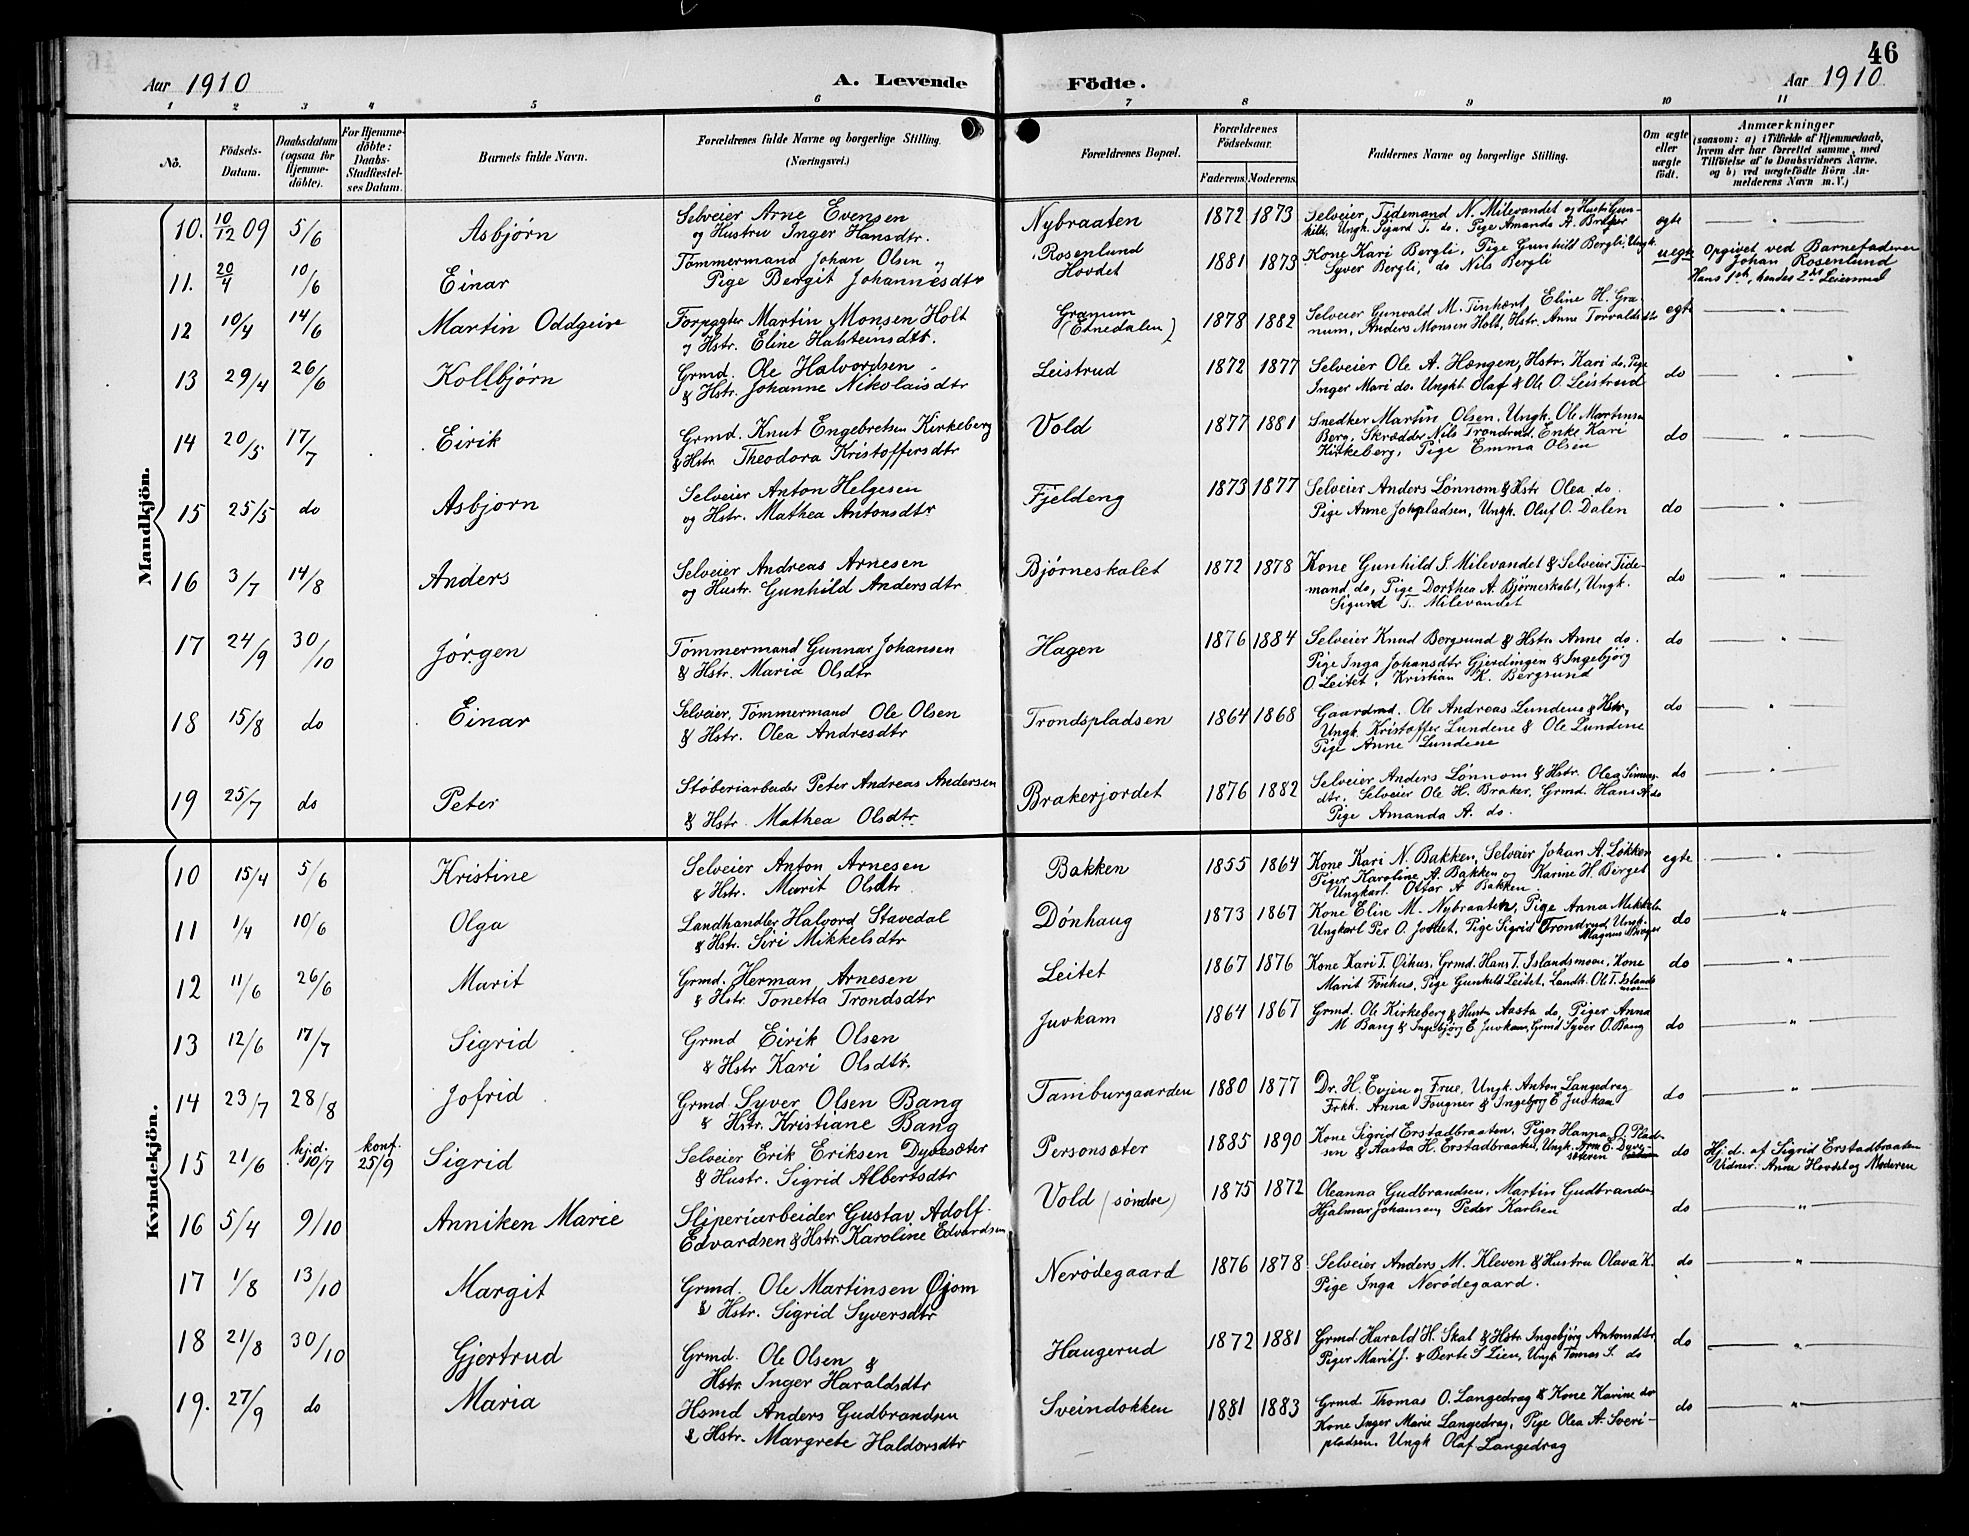 46
Aar 1910 A. Levende Födte. Aar 1910
1 2 3 4 5 6 7 8 9 10 11
No. Födsels-Datum. Daabsdatum (ogsaa for Hjemme-döbte). For Hjemme-döbte: Daabs-Stadfæstel-ses Datum. Barnets fulde Navn. Forældrenes fulde Navne og borgerlige Stilling. (Næringsvei.) Forældrenes Bopæl. Forældrenes Födselsaar. Faderens. Moderens. Faddernes Navne og borgerlige Stilling. Om ægte eller uægte födt. Anmærkninger (saasom: a) i Tilfælde af Hjemmedaab, hvem der har forrettet samme, med Tilföielse af to Daabsvidners Navne. og b) ved uægtefödte Börn An-melderens Navn m.V.)
Mandkjön.
10. 10/12 09 5/6 Asbjørn Selveier Arne Evensen Nybraaten 1872 1873 Selveier, Tidemand N. Milevandet og Hustr. Gun- egte "
og Hustru Inger Hansdtr. hild, Ungk. Sigurd T. do, Pige Amanda A. Braker
11. 20/4 10/6 Einar Tømmermand Johan Olsen og Rosenlund 1881 1873 Kone Kari Bergli, Pige Gunhild Bergli, Ungk. uegte Opgivet ved Barnefaderen
Pige Bergit Johannesdtr Hovdet Syver Bergli, do Nils Bergli Johan Rosenlund
Hans 1ste, hendes 2det Leiermaal
12 10/4 14/6 Martin Oddgeir Forpagter Martin Monsen Holt Granum 1878 1882 Selveier Gunvald M. Eline H. Gra- egte "
og Hstr. Eline Halsteinsdtr. (Etnedalen) num, Anders Monsen Holt, Hstr. Anne Torvaldsdtr
13 29/4 26/6 Kollbjørn Grmd. Ole Halvordsen Leistrud 1872 1877 Selveier Ole A. Hængen, Hstr. Kari do, Pige do "
& Hstr. Johanne Nikolaisdtr Inger Mari do. Ungkt. Olaf & Ole O. Leistrud
14 20/5 17/7 Eirik Grmd. Knut Engebretsen Kirkeberg Vold 1877 1881 Snedker Martin Olsen, Ungk. Ole Martinsen do "
& Hstr. Theodora Kristoffersdtr Berg, Skrædder Nils Trondrud, Enke Kari
Kirkeberg, Pige Emma Olsen
15 25/5 do Asbjørn Selveier Anton Helgesen Fjeldeng 1873 1877 Selveier Anders Lønnom & Hstr Olea do. do "
og Hstr. Mathea Antonsdtr Pige Anne Johpladsen, Ungk. Oluf O. Dalen
16 3/7 14/8 Anders Selveier Andreas Arnesen Bjørneskalet 1872 1878 Kone Gunhild T. Milevandet & Selveier Tide- do "
og Hustr. Gunhild Andersdtr mand do, Pige Dorthea A. Bjørneskalet, Ungk.
Sigurd T. Milevandet
17 24/9 30/10 Jørgen Tømmermand Gunnar Johansen Hagen 1876 1884 Selveier Knud Bergsund & Hstr. Anne do. do "
& Hstr. Maria Olsdtr Pige Inga Johansdtr Gjerdingen & Ingebjørg
O. Leitet, Kristian K. Bergsund
18 15/8 do Einar Selveier, Tømmermand Ole Olsen Trondspladsen 1864 1868 Gaardmd. Ole Andreas Lundene & Hstr, do "
& Hstr. Olea Andresdtr Ungk. Kristoffer Lundene & Ole Lundene
Pige Anne Lundene
19 25/7 do Peter Støberiarbeider Peter Andreas Andersen Brakerjordet 1876 1882 Selveier Anders Lønnom & Hstr. Olea Simens- do "
& Hstr. Mathea Olsdtr. dtr, Selveier Ole H. Braker, Grmd. Hans A do
Pige Amanda A. do.
Kvindekjön.
10 15/4 5/6 Kristine Selveier Anton Arnesen Bakken 1855 1864 Kone Kari N. Bakken, Selveier Johan A. Løkken egte "
& Hstr. Marit Olsdtr Piger Karoline A. Bakken og Karine H. Birget
Ungkarl. Ottar A Bakken
11 1/4 10/6 Olga Landhandler Halvord Stavedal Dønhaug 1873 1867 Kone Elise M. Nybraaten, Pige Annea Mikkels do "
& Hstr. Siri Mikkelsdtr Ungkarl Per O. Jordet, Pige Sigrid Trondrud, Ungk. Magnus
12 11/6 26/6 Marit Grmd. Herman Arnesen Leitet 1867 1876 Kone Kari T. Øihus, Grmd. Hans T. Islandsmoen, Kone do "
& Hstr. Tonetta Trondsdtr Marit Fønhus, Pige Gunhild Leitet, Landh. Ole T. Islandsmoen
13 12/6 17/7 Sigrid Grmd Eirik Olsen Juvkam 1864 1867 Grmd. Ole Kirkeberg & Hustru Aasta do, Piger Anna do "
& Hstr Kari Olsdtr. M. Bang & Ingebjørg E. Juvkam, Grmd Syver O. Bang
14 23/7 28/8 Jofrid Grmd Syver Olsen Bang Tamburgaarden 1880 1877 Dr. H. Evjen og Frue, Ungk. Anton Langedrag do "
& Hstr. Kristiane Bang Frkk. Anna Fougner & Ingebjørg E Juvkam
15 21/6 hjd. 10/7 konf. 25/9 Sigrid Selveier Erik Eriksen Dyvesæter Personsæter 1885 1890 Kone Sigrid Erstadbraaten, Piger Hanna O. Plad- do Hj.d. af Sigrid Erstadbraaten
& Hustr. Sigrid Albertsdtr sen & Aasta H. Erstadbraaten, Ungk. Arne E. Dyve-sæteren Vidner: Anne Hovdet og Moderen
16 5/4 9/10 Anniken Marie Sliperiarbeider Gustav Adolf Vold (søndre) 1875 1872 Oleanna Gudbrandsen, Martin Gudbrandsen, do "
Edvardsen & Hstr. Karoline Edvardsen Hjalmar Johansen, Peder Karlsen
17 1/8 13/10 Margit Grmd. Ole Martinsen Øjom Nerødegaard 1876 1878 Selveier Anders M. Kleven & Hustru Olava K. do "
& Hstr. Sigrid Syversdtr Pige Inga Nerødegaard.
18 21/8 30/10 Gjertrud Grmd. Ole Olsen & Haugerud 1872 1881 Grmd. Harald H. Skal & Hstr Ingebjørg Antonsdtr, do "
Hstr. Inger Haraldsdtr Piger Marit J. & Berte S Lien, Ungk Tomas S. do
19. 27/9 do Maria Hsmd Anders Gudbrandsen Sveindokken 1881 1883 Grmd. Thomas O. Langedrag & Kone Karine do do "
& Hstr. Margrete Haldorsdtr Kone Inger Marie Langedrag, Pige Olea A. Sveri-
pladsen, Ungk Olaf Langedrag